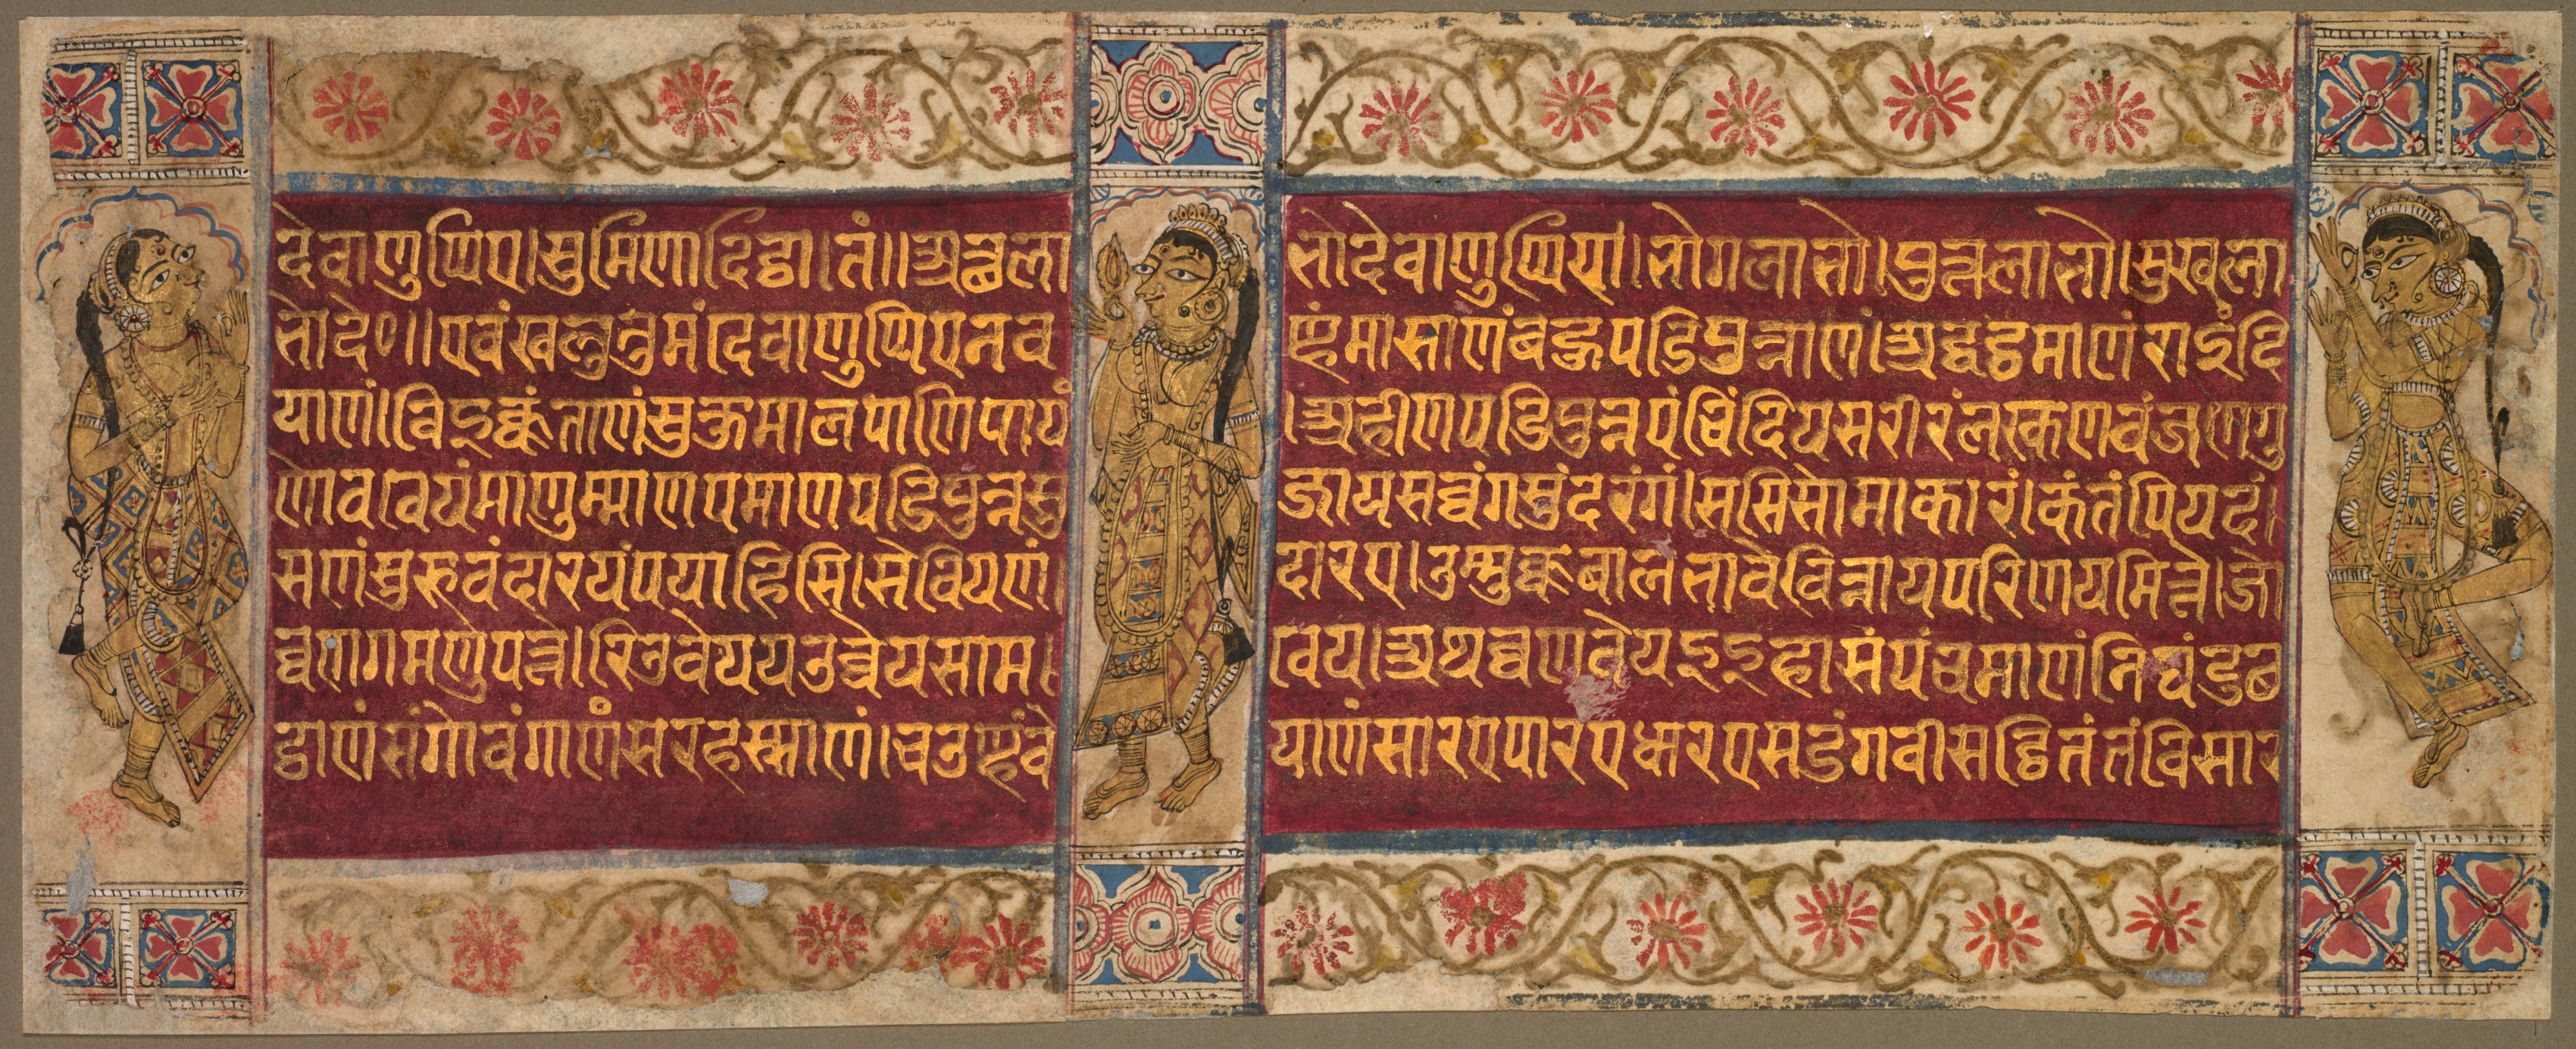 देवाणुप्पिए।सुमिणादिट्ठा।तं॥अत्थला भोदेवाणुप्पिया।भोगलाभो।पुत्तलाभो।सुखला
भोदे०॥एवंखलुतुमंदेवाणुप्पिएनव ण्हंमासाणंबहुपडिपुन्नाणं।अद्धट्ठमाणंराइंदि
याणं।विइक्कंताणंसुकुमालपाणिपायं ।अहीणपडिपुन्नपंचिंदियसरीरंलक्खणवंजणगु
णोववेयंमाणुम्माणपमाणपडिपुन्नसु जायसव्वंगसुंदरंगं।ससिसोमाकारं।कंतंपियदं।
सणंसुरुवंदारयंपयाहिसि।सेवियणं। दारए।उम्मुक्कबालभावेविन्नायपरिणयमित्ते।जो
व्वणगमणुपत्ते।रिउवेययउव्वेयसाम। वेय।अथव्वणवेयइइहासंपंचमाणंनिघंडुछ
ट्ठाणंसंगोवंगाणंसरहस्साणं।चउण्हंवे याणंसारएपारएधारएसडंगवीसट्ठितंतंविसार